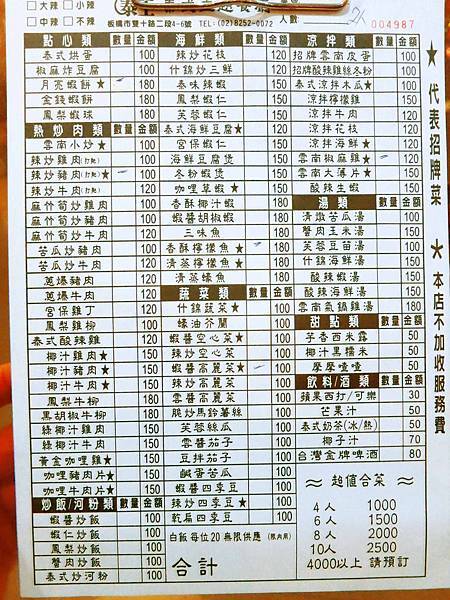 大辣 小辣
中辣 不辣
板橋市雙十路二段4-6號 TEL:(02)8252-0072 人數
004987
點心類 數量 金額
泰式烘蛋 100
椒麻炸豆腐 100
月亮蝦餅★ 180
金錢蝦餅 180
鳳梨蝦球 180
熱炒肉類 數量 金額
雲南小炒★
辣炒雞肉
辣炒豬肉
辣炒牛肉
麻竹筍炒雞肉
麻竹筍炒豬肉
麻竹筍炒牛肉
苦瓜炒豬肉
苦瓜炒牛肉
蔥爆豬肉 120
蔥爆牛肉 120
宮保雞丁 120
鳳梨雞柳
泰式酸辣雞
椰汁雞肉★ 150
椰汁豬肉★ 150
椰汁牛肉★ 150
鳳梨牛柳 180
黑胡椒牛柳 180
綠椰汁雞肉 150
綠椰汁牛肉 150
黃金咖哩雞★ 150
咖哩豬肉片★ 150
咖哩牛肉片★ 150
炒飯/河粉類 數量 金額
蝦醬炒飯 100
蝦仁炒飯 100
鳳梨炒飯 100
蟹肉炒飯 100
泰式炒河粉 100
海鮮類 數量 金額
辣炒花枝 120
什錦炒三鮮 120
泰味辣蝦
鳳梨蝦仁
芙蓉蝦仁
泰式海鮮豆腐★
宮保蝦仁
海鮮豆腐煲
冬粉蝦煲
咖哩草蝦★
香酥椰汁蝦
蝦醬胡椒蝦
三味魚
香酥檸檬魚★
清蒸檸檬魚★
清蒸蠔魚
蔬菜類 數量 金額
什錦蔬菜★ 100
蠔油芥蘭 100
蝦醬空心菜★ 100
辣炒空心菜 100
蝦醬高麗菜★ 100
辣炒高麗菜 100
雲醬高麗菜 100
脆炒馬鈴薯絲 100
芙蓉絲瓜 100
雲醬茄子 100
豆拌茄子 100
鹹蛋苦瓜 100
蝦醬四季豆 100
辣炒四季豆★ 100
乾扁四季豆 100
白飯每位20 無限供應 (限內用)
合計
涼拌類 數量 金額
招牌雲南皮蛋 100
招牌酸辣雞絲冬粉 100
泰式涼拌木瓜★ 100
涼拌檸檬雞
涼拌牛肉
涼拌花枝 120
涼拌海鮮 120
雲南椒麻雞★ 120
雲南大薄片★
酸辣生蝦 150
湯類 數量 金額
清燉苦瓜湯 100
蟹肉玉米湯 100
芙蓉豆苗湯 100
什錦海鮮湯 150
酸辣蝦湯 150
酸辣海鮮湯 150
雲南氣鍋雞湯 180
甜點類 數量 金額
芋香西米露 50
椰汁黑糯米 50
摩摩喳喳 50
飲料/酒類 數量 金額
蘋果西打/可樂 30
芒果汁 50
泰式奶茶(冰/熱) 50
椰子汁 70
台灣金牌啤酒 80
≈ 超值合菜 ≈
4人 1000
6人 1500
8人 2000
10人 2500
4000以上 請預訂
★代表招牌菜 ★本店不加收服務費